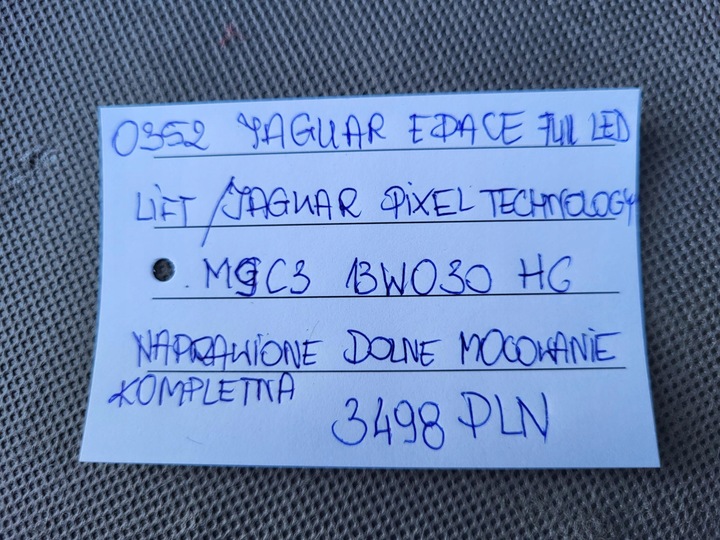 0352 JAGUAR EPACE FUll LED
LIFT / JAGUAR PiXEL TECHNOLOGY
M9C3 13W030 HG
NAPRAWIONE DOLNE MOCOWANIE
KOMPLETNA
3498 PLN